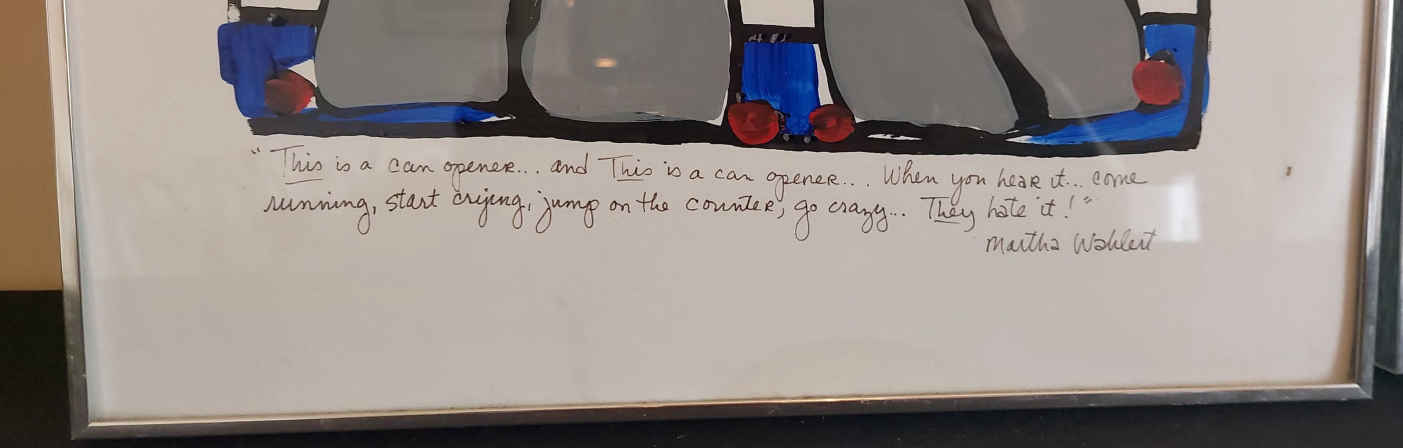 "This is a can opener... and This is a can opener... When you hear it... come
running, start crying, jump on the counter, go crazy... They hate it!"
Martha Wohlert